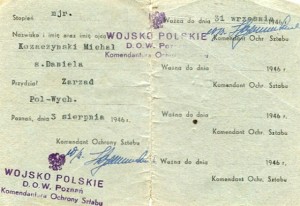 Stopień mjr.
Nazwisko i imię oraz imię ojca
Kozaczyński Michał
s.Daniela
Przydział Zarząd
Pol-Wych.
Poznań, dnia 3 sierpnia 1946 r.
Komendant Ochrony Sztabu
WOJSKO POLSKIE
D.O.W. Poznań
Komendantura Ochrony Sztabu
Ważna do dnia 31 września 1946 r.
WOJSKO POLSKIE
D.O.W. Poznań
Komendantura Ochrony Sztabu
Komendant Ochr. Sztabu
Ważna do dnia 1946 r.
Komendant Ochr. Sztabu
Ważna do dnia 1946 r.
Komendant Ochr. Sztabu
Ważna do dnia 1946 r.
Komendant Ochr. Sztabu